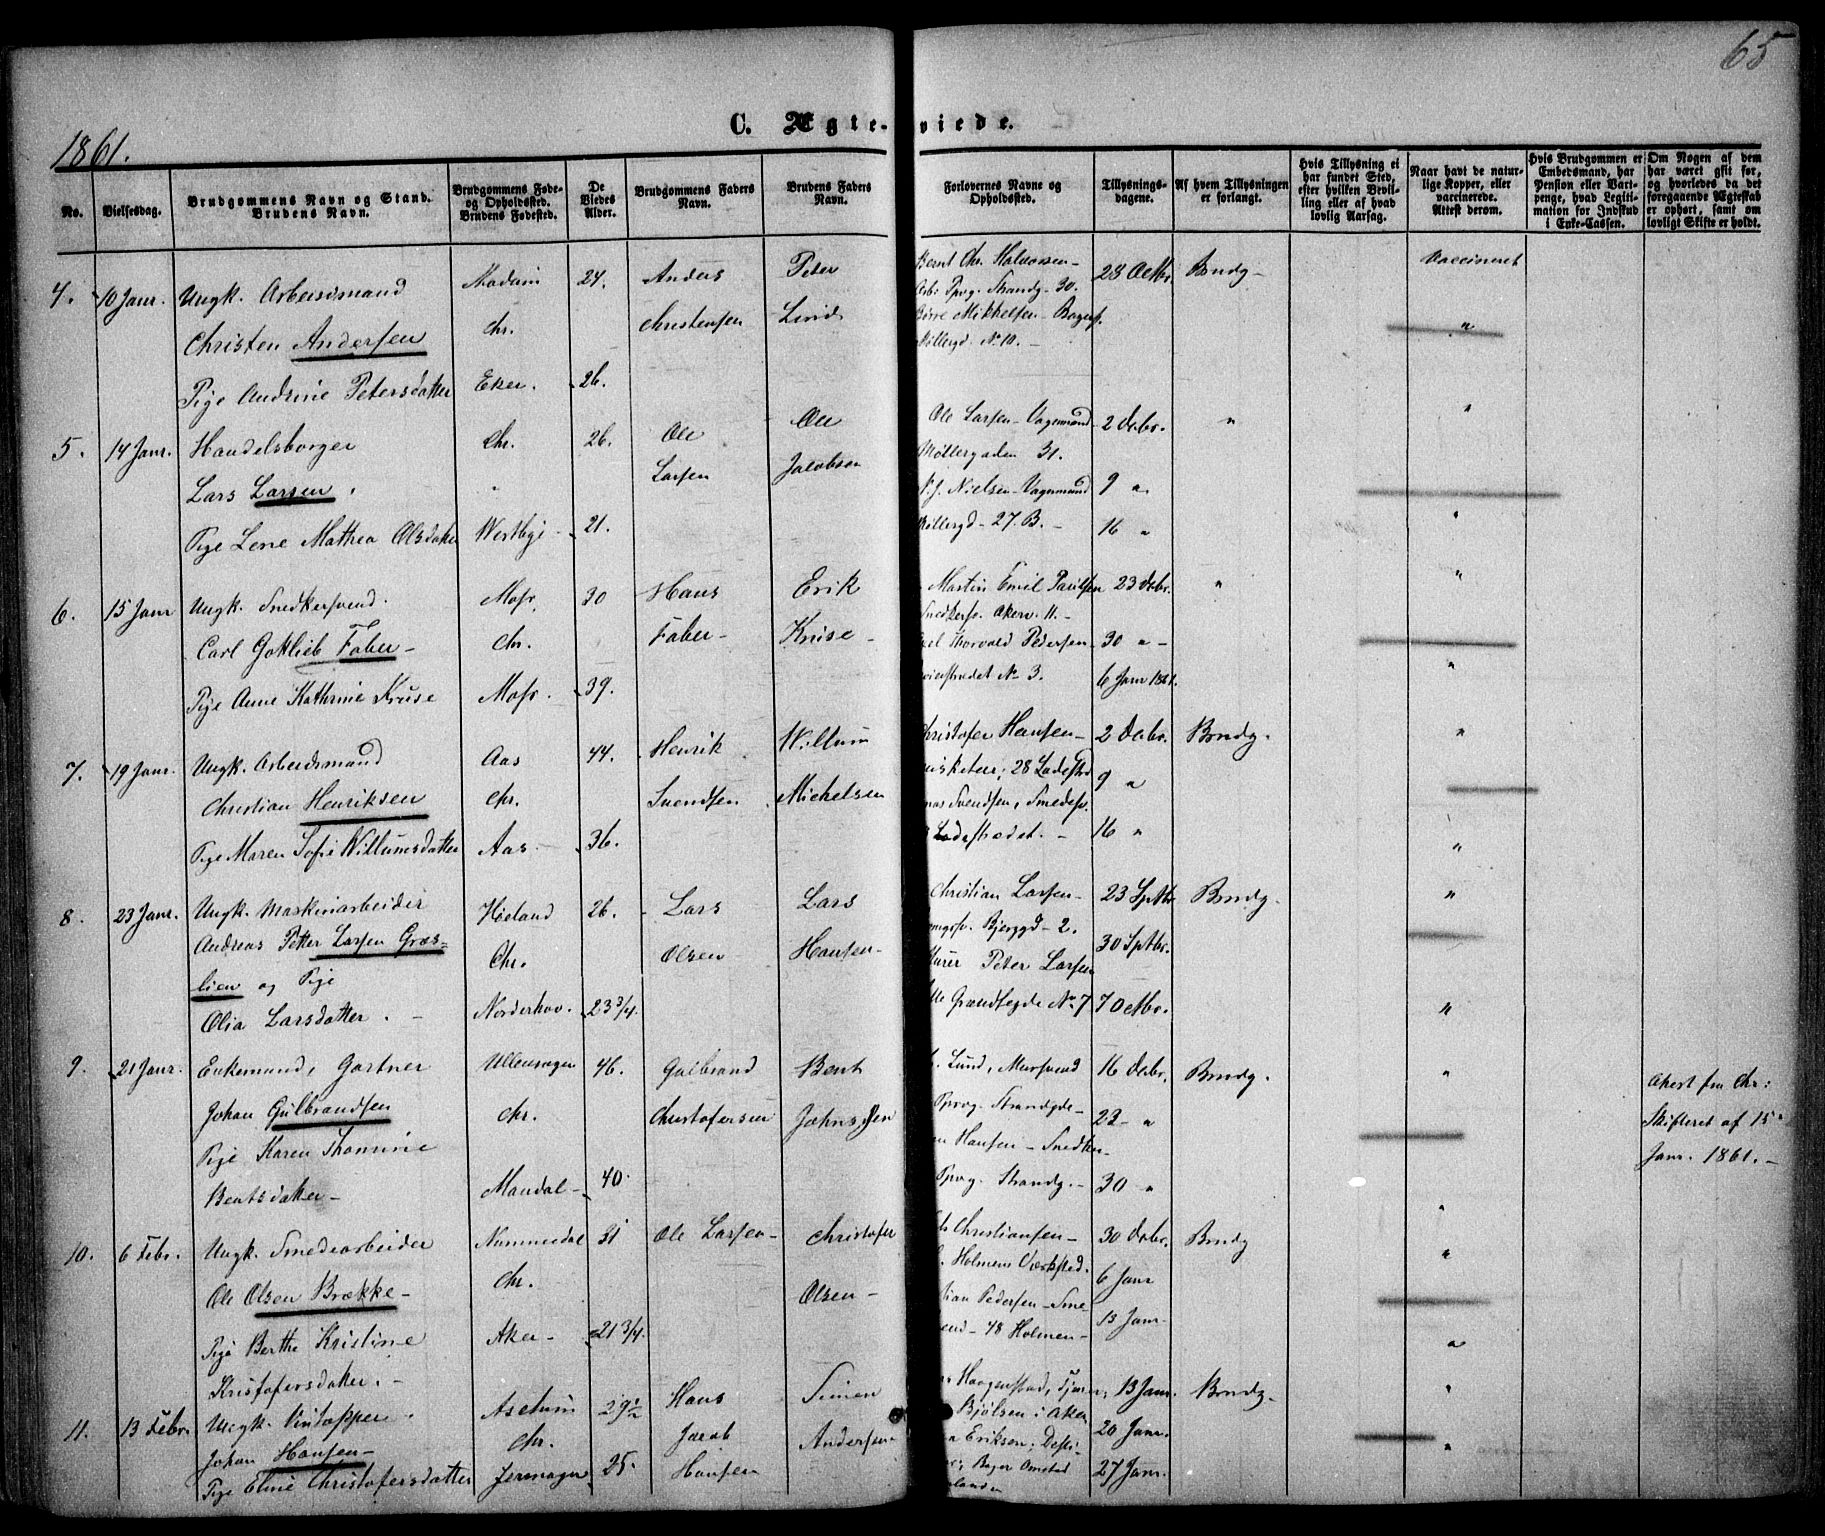 65
C. Ægteviede.
1861.
No.
Vielsesdag.
Brudgommens Navn og Stand.
Brudens Navn.
Brudgommens Føde- og Opholdssted.
Brudens Fødested.
De Viedes Alder.
Brudgommens Faders Navn.
Brudens Faders Navn.
Forlovernes Navne og Opholdssted.
Tillysnings-dagene.
Af hvem Tillysningen er forlangt.
Hvis Tillysning ei har fundet Sted, efter hvilken Bevilling eller af hvad lovlig Aarsag.
Naar havt de naturlige Kopper, eller vaccinerede. Attest derom.
Hvis Brudgommen er Embedsmand, har Pension eller Vartpenge, hvad Legitimation for Indskud i Enke-Cassen.
Om Nogen af dem har været gift før, og hvorledes da det foregaaende Ægteskab er ophørt, samt om lovligt Skifte er holdt.
4. 10 Janr. Ungk. Arbeidsmand Modum 24. Anders Peter Bernt Chr. Halvorsen 28 Octbr. Brudg. Vaccineret
Christen Andersen Chr. Christensen Lind Arb. Ppvg. Strandg. 30.
Børre Mikkelsen - Bagers.
Møllergd. No 10. -
Pige Andrine Petersdatter Eker. 26. "
5. 14 Janr. Handelsborger Chr. 26. Ole Ole Ole Larsen - Vognmand 2 Decbr. "
Lars Larsen. " Larsen Jacobsen Møllergaden 31.
Nielsen - Vognmand 9 "
Pige Lene Mathea Olsdatter Westbye 21. Møllergd. 27 B. - 16 " "
6. 15 Janr Ungk. Snedkersvend. Mosr. 30 Hans Erik Martin Emil Paulsen 23 Decbr. " "
Snedkersv. Akerv. 11. -
Carl Gotlieb Faber - Chr. Faber - Kruse - Thorvald Pedersen 30 " -
Pige Anne Kathrine Kruse Mosr. 39. No 3. 6 Janr 1861. "
7. 19 Janr. Ungk. Arbeidsmand Aas 44. Henrik Willum Christofer Hansen - 2 Decbr. Brudg. "
28 Ladestræd
Christian Henriksen Chr. Svendsen Michelsen Svendsen, Smedesv. 9 "
Pige Maren Sofie Willumsdatter Aas. 36. Ladestrædet. - 16 " "
8. 23 Janr. Ungk. Maskinarbeider Høland 26. Lars Lars Christian Larsen - 23 Septbr Brudg. "
Andreas Petter Larsen Græs- Bjerggd - 2.
lien og Pige Chr. Olsen Hansen - Murer Peter Larsen 30 Septbr.
Olia Larsdatter. - Norderhov. 23 3/4. No 7 7 Octbr. "
9. 21 Janr. Enkemand, Gartner Ullensager 46. Gulbrand Bent Lund, Mursvend 16 Decbr. Brudg. " Attest fra Chr:
Johan Gulbrandsen Chr. Christofersen Johnsen Ppvg. Strandgde - 23 - " Skifteret af 15de
Pige Karen Thomine Hansen - Snedker Janr. 1861. -
Bentsdatter - Mandal - 40. Ppvg. Strandg. - 30 " "
10. 6 Febr. Ungk. Smedearbeider Nummedal 31 Ole Larsen - Christofer Christiansen - 30 Decbr. Brudg "
Ole Olsen Brække - Chr. Olsen - Holmens Værksted. 6 Janr
Pedersen - Sme-
Pige Berthe Kristine Aker - 21 3/4. 48 Holmen - 13 Janr. "
Kristofersdatter. -
11. 13 Febr. Ungk. Vintapper. Asetum 29 1/2 Hans Simen Haagenstad, 13 Janr. Brudg. "
Bjølsen i Aker
Johan Hansen - Chr. Jacob Andersen - Eriksen, 20 Janr. "
Pige Eline Christofersdatter 25. Hansen 27 Janr.